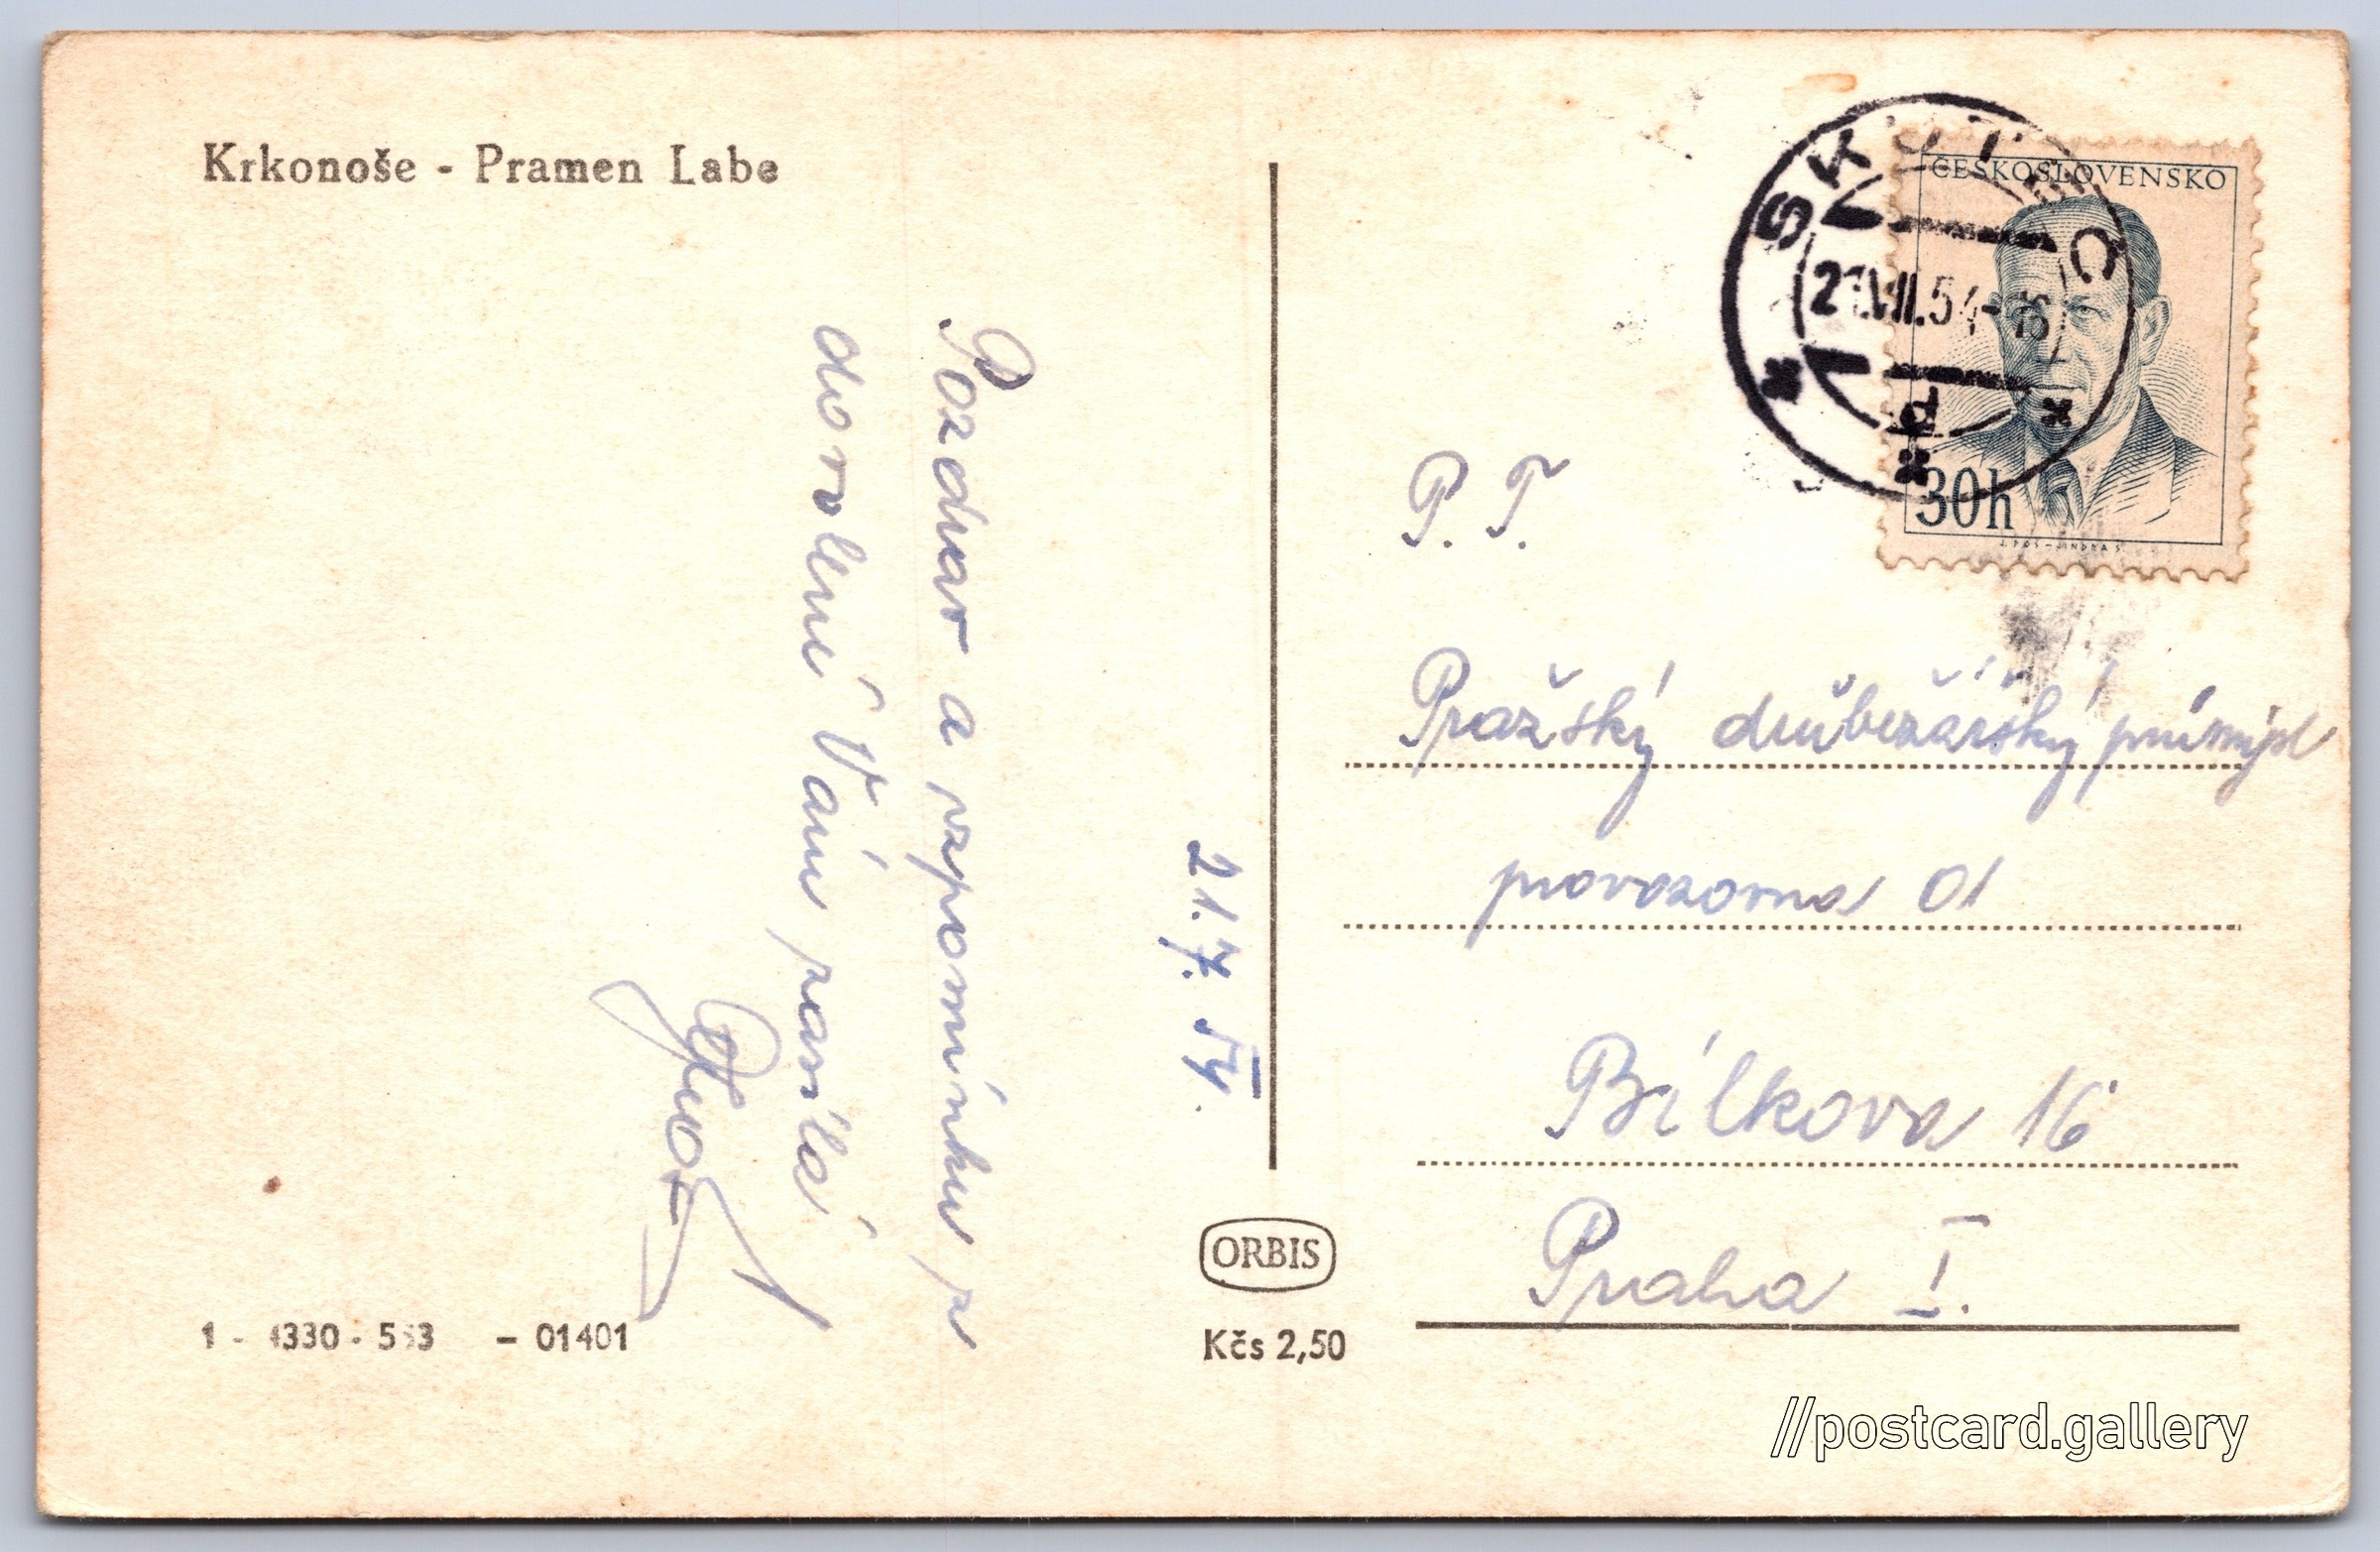 Krkonoše - Pramen Labe
Pozdrav a vzpomínku z
dovolení Vám zasílá
21. 7. 54.
1 - 4330 - 553 - 01401
ORBIS
Kčs 2,50
SKUTEČ
21.VII.54-
d
ČESKOSLOVENSKO
30h
P. T.
Pražský drůbežářský průmysl
provozovna 01
Bílkova 16
Praha I.
//postcard.gallery